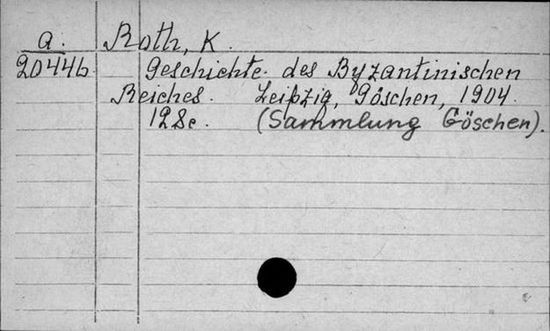 a. Roth, K.
20446 Geschichte des Byzantinischen
Reiches. Leipzig, Göschen, 1904.
128c. (Sammlung Göschen).